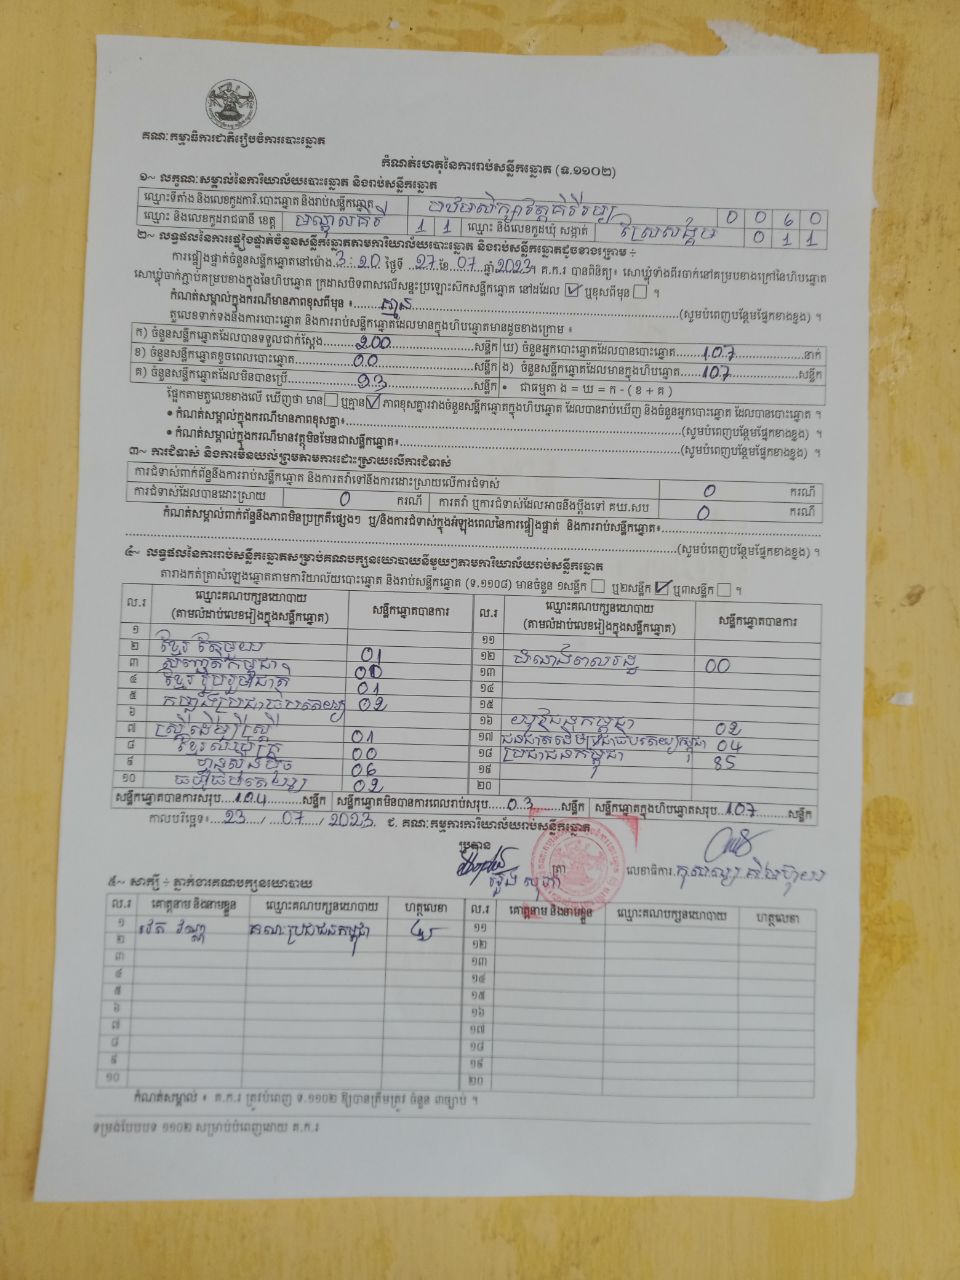 គណៈកម្មាធិការជាតិរៀបចំការបោះឆ្នោត
កំណត់ហេតុនៃការរាប់សន្លឹកឆ្នោត (ទ.១១០២)
១~ លក្ខណៈសម្គាល់នៃការិយាល័យបោះឆ្នោត និងរាប់សន្លឹកឆ្នោត
ឈ្មោះទីតាំង និងលេខកូដការិ.បោះឆ្នោត និងរាប់សន្លឹកឆ្នោត បឋមសិក្សាវត្តគិរីរម្យ 0 0 6 0
ឈ្មោះ និងលេខកូដរាជធានី ខេត្ត មណ្ឌលគិរី 1 1 ឈ្មោះ និងលេខកូដឃុំ សង្កាត់ ស្រែសង្គម 0 1 1
២~ លទ្ធផលនៃការផ្ទៀងផ្ទាត់ចំនួនសន្លឹកឆ្នោតតាមការិយាល័យបោះឆ្នោត និងរាប់សន្លឹកឆ្នោតដូចខាងក្រោម ÷
ការផ្ទៀងផ្ទាត់ចំនួនសន្លឹកឆ្នោតនៅម៉ោង 3:20 ថ្ងៃទី 27 ខែ 07 ឆ្នាំ 2023។ គ.ក.រ បានពិនិត្យ៖ សោឃ្មុំទាំងពីរចាក់នៅគម្របខាងក្រៅនៃហិបឆ្នោត
សោឃ្មុំចាក់ភ្ជាប់គម្របខាងក្នុងនៃហិបឆ្នោត ក្រដាសបិទពាសលើសន្ទះប្រឡោះស៊កសន្លឹកឆ្នោត នៅដដែល ☑ ឬខុសពីមុន ☐ ។
កំណត់សម្គាល់ក្នុងករណីមានភាពខុសពីមុន ៖ គ្មាន (សូមបំពេញបន្ថែមផ្នែកខាងខ្នង) ។
តួលេខទាក់ទងនឹងការបោះឆ្នោត និងការរាប់សន្លឹកឆ្នោតដែលមានក្នុងហិបឆ្នោតមានដូចខាងក្រោម ៖
ក) ចំនួនសន្លឹកឆ្នោតដែលបានទទួលជាក់ស្តែង 200 សន្លឹក ឃ) ចំនួនអ្នកបោះឆ្នោតដែលបានបោះឆ្នោត 107 នាក់
ខ) ចំនួនសន្លឹកឆ្នោតខូចពេលបោះឆ្នោត 00 សន្លឹក ង) ចំនួនសន្លឹកឆ្នោតដែលមានក្នុងហិបឆ្នោត 107 សន្លឹក
គ) ចំនួនសន្លឹកឆ្នោតដែលមិនបានប្រើ 93 សន្លឹក • ជាធម្មតា ង = ឃ = ក - ( ខ + គ )
ផ្អែកតាមតួលេខខាងលើ ឃើញថា មាន ☐ ឬគ្មាន ☑ ភាពខុសគ្នារវាងចំនួនសន្លឹកឆ្នោតក្នុងហិបឆ្នោត ដែលបានរាប់ឃើញ និងចំនួនអ្នកបោះឆ្នោត ដែលបានបោះឆ្នោត ។
• កំណត់សម្គាល់ក្នុងករណីមានភាពខុសគ្នា៖ (សូមបំពេញបន្ថែមផ្នែកខាងខ្នង) ។
• កំណត់សម្គាល់ក្នុងករណីមានវត្ថុមិនមែនជាសន្លឹកឆ្នោត៖ (សូមបំពេញបន្ថែមផ្នែកខាងខ្នង) ។
៣~ ការជំទាស់ និងការមិនយល់ព្រមតាមការដោះស្រាយលើការជំទាស់
ការជំទាស់ពាក់ព័ន្ធនឹងការរាប់សន្លឹកឆ្នោត និងការតវ៉ាទៅនឹងការដោះស្រាយលើការជំទាស់ 0 ករណី
ការជំទាស់ដែលបានដោះស្រាយ 0 ករណី ការតវ៉ា ឬការជំទាស់ដែលអាចនឹងប្តឹងទៅ គឃ.សប 0 ករណី
កំណត់សម្គាល់ពាក់ព័ន្ធនឹងភាពមិនប្រក្រតីផ្សេងៗ ឬ/និងការជំទាស់ក្នុងអំឡុងពេលនៃការផ្ទៀងផ្ទាត់ និងការរាប់សន្លឹកឆ្នោត៖
(សូមបំពេញបន្ថែមផ្នែកខាងខ្នង) ។
៤~ លទ្ធផលនៃការរាប់សន្លឹកឆ្នោតសម្រាប់គណបក្សនយោបាយនីមួយៗតាមការិយាល័យរាប់សន្លឹកឆ្នោត
តារាងកត់ត្រាសំឡេងឆ្នោតតាមការិយាល័យបោះឆ្នោត និងរាប់សន្លឹកឆ្នោត (ទ.១១០៨) មានចំនួន ១សន្លឹក ☐ ឬ២សន្លឹក ☑ ឬ៣សន្លឹក ☐ ។
ល.រ ឈ្មោះគណបក្សនយោបាយ (តាមលំដាប់លេខរៀងក្នុងសន្លឹកឆ្នោត) សន្លឹកឆ្នោតបានការ ល.រ ឈ្មោះគណបក្សនយោបាយ (តាមលំដាប់លេខរៀងក្នុងសន្លឹកឆ្នោត) សន្លឹកឆ្នោតបានការ
១ ១១
២ ខ្មែរតែមួយ 01 ១២ ជំនាន់ពលរដ្ឋ 00
៣ សញ្ជាតិកម្ពុជា 00 ១៣
៤ ខ្មែររួបរួមជាតិ 01 ១៤
៥ កម្លាំងប្រជាធិបតេយ្យ 02 ១៥
៦ ១៦ យុវជនកម្ពុជា 02
៧ ស្ត្រីដើម្បីស្ត្រី 01 ១៧ ជនជាតិដើមប្រជាធិបតេយ្យកម្ពុជា 04
៨ ខ្មែរ 00 ១៨ ប្រជាជនកម្ពុជា 85
៩ ហ្វ៊ុនស៊ិនប៉ិច 06 ១៩
១០ ធម្មាធិបតេយ្យ 02 ២០
សន្លឹកឆ្នោតបានការសរុប 104 សន្លឹក សន្លឹកឆ្នោតមិនបានការពេលរាប់សរុប 03 សន្លឹក សន្លឹកឆ្នោតក្នុងហិបឆ្នោតសរុប 107 សន្លឹក
កាលបរិច្ឆេទ៖ 23 / 07 / 2023 ជ. គណៈកម្មការការិយាល័យរាប់សន្លឹកឆ្នោត
ប្រធាន
ត្រា លេខាធិការ
៥~ សាក្សី ÷ ភ្នាក់ងារគណបក្សនយោបាយ
ល.រ គោត្តនាម និងនាមខ្លួន ឈ្មោះគណបក្សនយោបាយ ហត្ថលេខា ល.រ គោត្តនាម និងនាមខ្លួន ឈ្មោះគណបក្សនយោបាយ ហត្ថលេខា
១ គណៈប្រជាជនកម្ពុជា ១១
២ ១២
៣ ១៣
៤ ១៤
៥ ១៥
៦ ១៦
៧ ១៧
៨ ១៨
៩ ១៩
១០ ២០
កំណត់សម្គាល់ ៖ គ.ក.រ ត្រូវបំពេញ ទ.១១០២ ឱ្យបានត្រឹមត្រូវ ចំនួន ៣ច្បាប់ ។
ទម្រង់បែបបទ ១១០២ សម្រាប់បំពេញដោយ គ.ក.រ